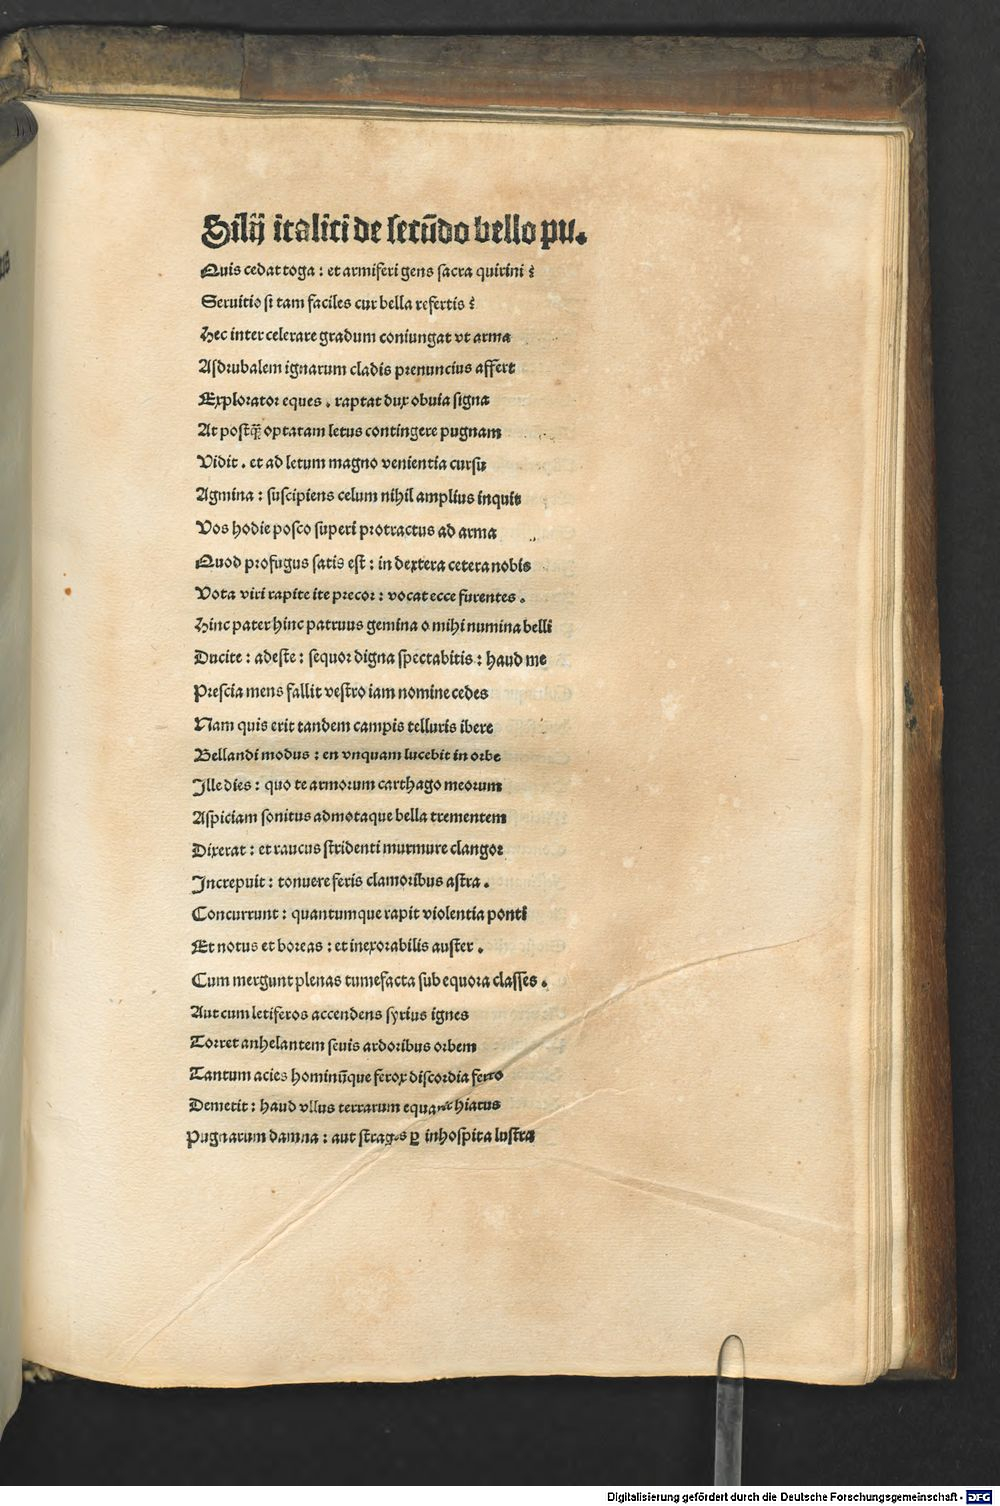 Silij italici de secūdo bello pu.
Quis cedat toga : et armiferi gens sacra quirini ?
Seruitio si tam faciles cur bella refertis ?
Hec inter celerare gradum coniungat vt arma
Asdrubalem ignarum cladis prenuncius affert
Explorator eques . raptat dux obuia signa
At postq̄ optatam letus contingere pugnam
Vidit . et ad letum magno venientia cursu
Agmina : suscipiens celum nihil amplius inquit
Vos hodie posco superi protractus ad arma
Quod profugus satis est : in dextera cetera nobis
Vota viri rapite ite precor : vocat ecce furentes .
Hinc pater hinc patruus gemina o mihi numina belli
Ducite : adeste : sequor digna spectabitis : haud me
Prescia mens fallit vestro iam nomine cedes
Nam quis erit tandem campis telluris ibere
Bellandi modus : en vnquam lucebit in orbe
Ille dies : quo te armorum carthago meorum
Aspiciam sonitus admotaque bella trementem
Dixerat : et raucus stridenti murmure clangor
Increpuit : tonuere feris clamoribus astra .
Concurrunt : quantumque rapit violentia ponti
Et notus et boreas : et inexorabilis auster .
Cum mergunt plenas tumefacta sub equora classes .
Aut cum letiferos accendens syrius ignes
Torret anhelantem seuis ardoribus orbem
Tantum acies hominūque ferox discordia ferro
Demetit : haud vllus terrarum equarit hiatus
Pugnarum damna : aut strages ꝑ inhospita lustra
pus
Digitalisierung gefördert durch die Deutsche Forschungsgemeinschaft - DFG